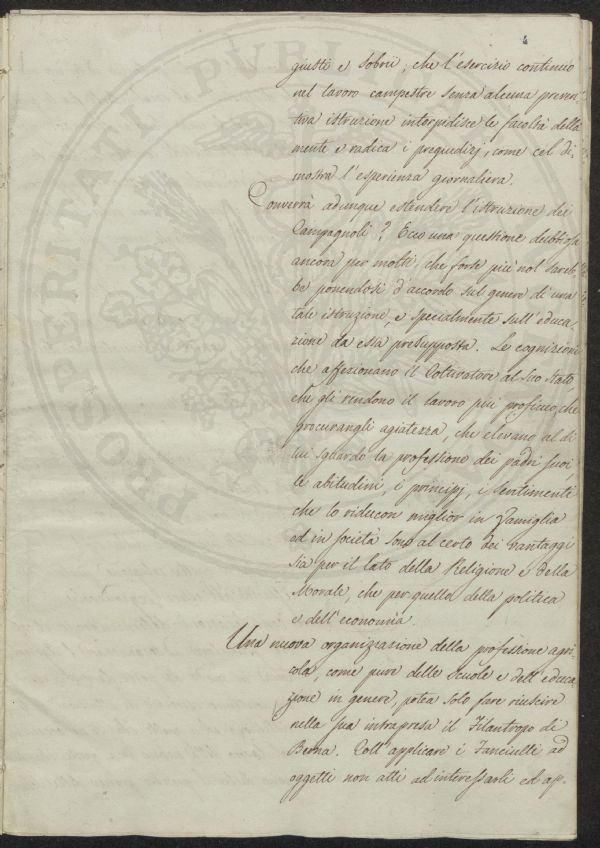 4
giusti e sobrii; che l'esercizio continuo
nel lavoro campestre senza alcuna preven-
tiva istruzione intorpidisce le facoltà della
mente e radica i pregiudizj, come cel di,
mostra l'esperienza giornaliera.
Converrà adunque estendere l'istruzione dei
Campagnoli? Ecco una questione dubbiosa
ancora per molti, che forse più nol sareb-
be ponendosi d'accordo sul genere di una
tale istruzione, e specialmente sull'educa-
zione da essa presupposta. Le cognizioni
che affezionano il Coltivatore al suo stato
che gli rendono il lavoro più proficuo, che
procurangli agiatezza, che elevano al di
lui sguardo la professione dei padri suoi
le abitudini, i principj, i sentimenti
che lo riducon miglior in famiglia
ed in società sono al certo dei vantaggi
sia per il lato della Religione e della
Morale, che per quello della politica
e dell'economia.
Una nuova organizzazione della professione agri-
cola, come pure delle scuole e dell'educa-
zione in genere, potea solo fare riuscire
nella sua intrapresa il Filantropo di
Berna. Coll'applicare i Fanciulli ad
oggetti non atti ad interessarli ed ap-
PROSPERITATI PUBL